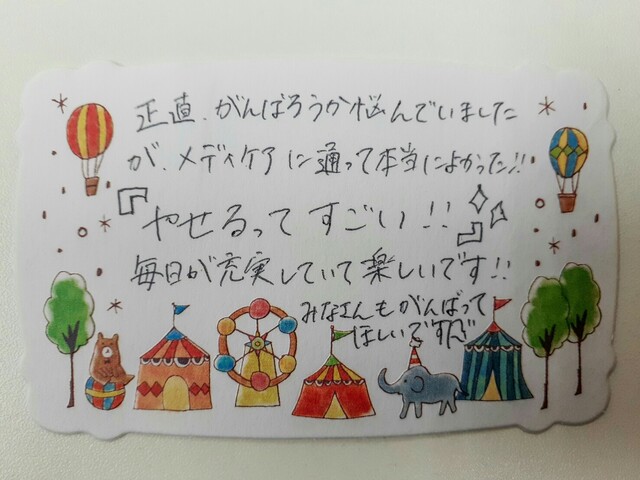 正直、がんばろうか悩んでいました
が、メディケアに通って本当によかった!!
『やせるって すごい!!』
毎日が充実していて楽しいです!!
みなさんもがんばって
ほしいですね